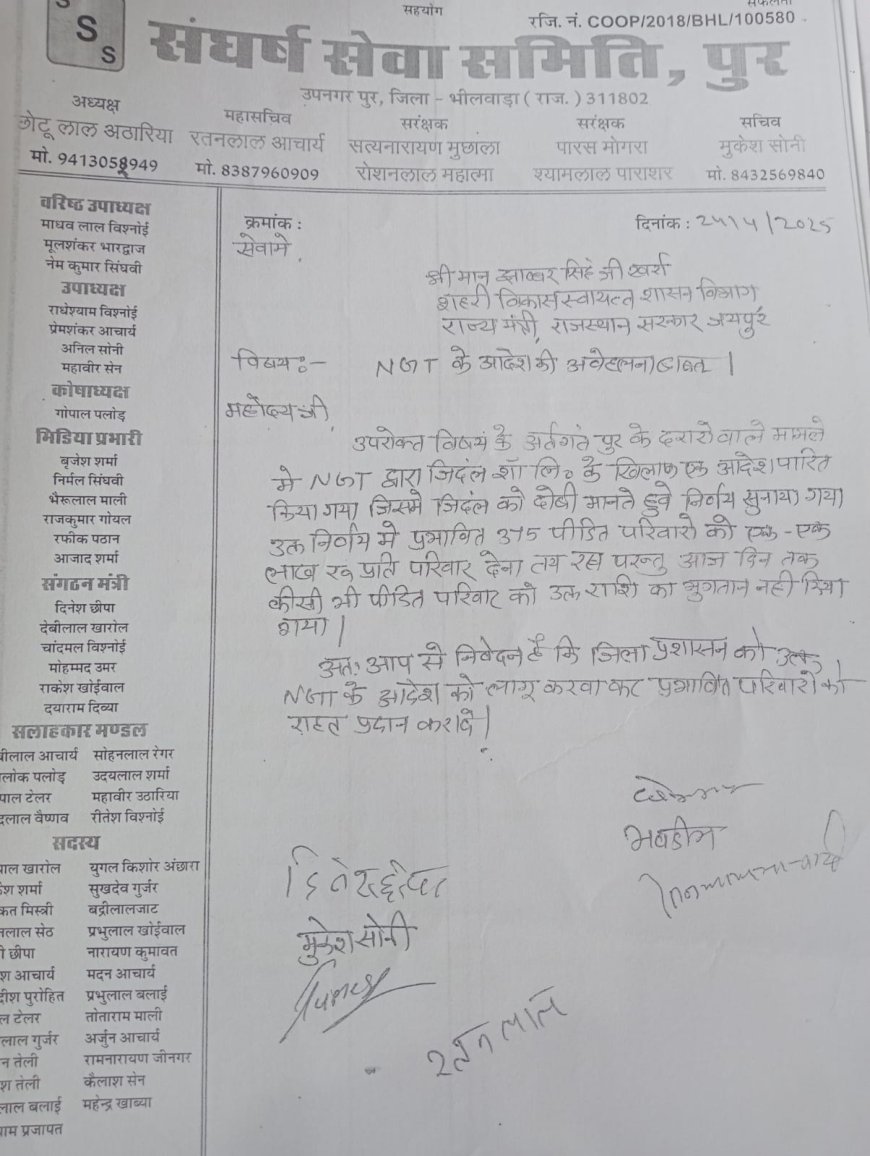 S
S
सहयोग
रजि. नं. COOP/2018/BHL/100580
संघर्ष सेवा समिति, पुर
उपनगर पुर, जिला - भीलवाड़ा ( राज. ) 311802
अध्यक्ष
छोटू लाल अठारिया
मो. 9413058949
महासचिव
रतनलाल आचार्य
मो. 8387960909
सरंक्षक
सत्यनारायण मुछाला
रोशनलाल महात्मा
सरंक्षक
पारस मोगरा
श्यामलाल पाराशर
सचिव
मुकेश सोनी
मो. 8432569840
वरिष्ठ उपाध्यक्ष
माधव लाल विश्नोई
मूलशंकर भारद्वाज
नेम कुमार सिंघवी
उपाध्यक्ष
राधेश्याम विश्नोई
प्रेमशंकर आचार्य
अनिल सोनी
महावीर सेन
कोषाध्यक्ष
गोपाल पलोड़
मिडिया प्रभारी
बृजेश शर्मा
निर्मल सिंघवी
भैरूलाल माली
राजकुमार गोयल
रफीक पठान
आजाद शर्मा
संगठन मंत्री
दिनेश छीपा
देबीलाल खारोल
चांदमल विश्नोई
मोहम्मद उमर
राकेश खोईवाल
दयाराम दिव्या
सलाहकार मण्डल
आचार्य सोहनलाल रेगर
पलोड़ उदयलाल शर्मा
टेलर महावीर उठारिया
वैष्णव रीतेश विश्नोई
सदस्य
खारोल युगल किशोर अंछारा
शर्मा सुखदेव गुर्जर
मिस्त्री बद्रीलालजाट
सेठ प्रभुलाल खोईवाल
छीपा नारायण कुमावत
आचार्य मदन आचार्य
पुरोहित प्रभुलाल बलाई
टेलर तोताराम माली
गुर्जर अर्जुन आचार्य
तेली रामनारायण जीनगर
तेली कैलाश सेन
बलाई महेन्द्र खाब्या
प्रजापत
क्रमांक :
दिनांक : 24/4/2025
सेवामे,
श्री मान झाब्बर सिंह जी खर्रा
शहरी विकास स्वायत्त शासन विभाग
राज्य मंत्री, राजस्थान सरकार जयपुर
विषय :- NGT के आदेश की अवेहलना बाबत |
महोदय जी,
उपरोक्त विषय के अर्तगत पुर के दरारो वाले मामले
मे NGT द्वारा जिदंल शॉ लि० के खिलाफ एक आदेश पारित
किया गया जिसमे जिदंल को दोषी मानते हुवे निर्णय सुनाया गया
उक्त निर्णय मे प्रभावित 375 पीडित परिवारो को एक-एक
लाख रू प्रति परिवार देना तय रहा परन्तु आज दिन तक
कीसी भी पीडित परिवार को उक्त राशि का भुगतान नही किया
गया |
अतः आप से निवेदन है कि जिला प्रशासन को उक्त
NGT के आदेश को लागू करवा कर प्रभावित परिवारो को
राहत प्रदान करावे |
मुकेश सोनी
रतनलाल